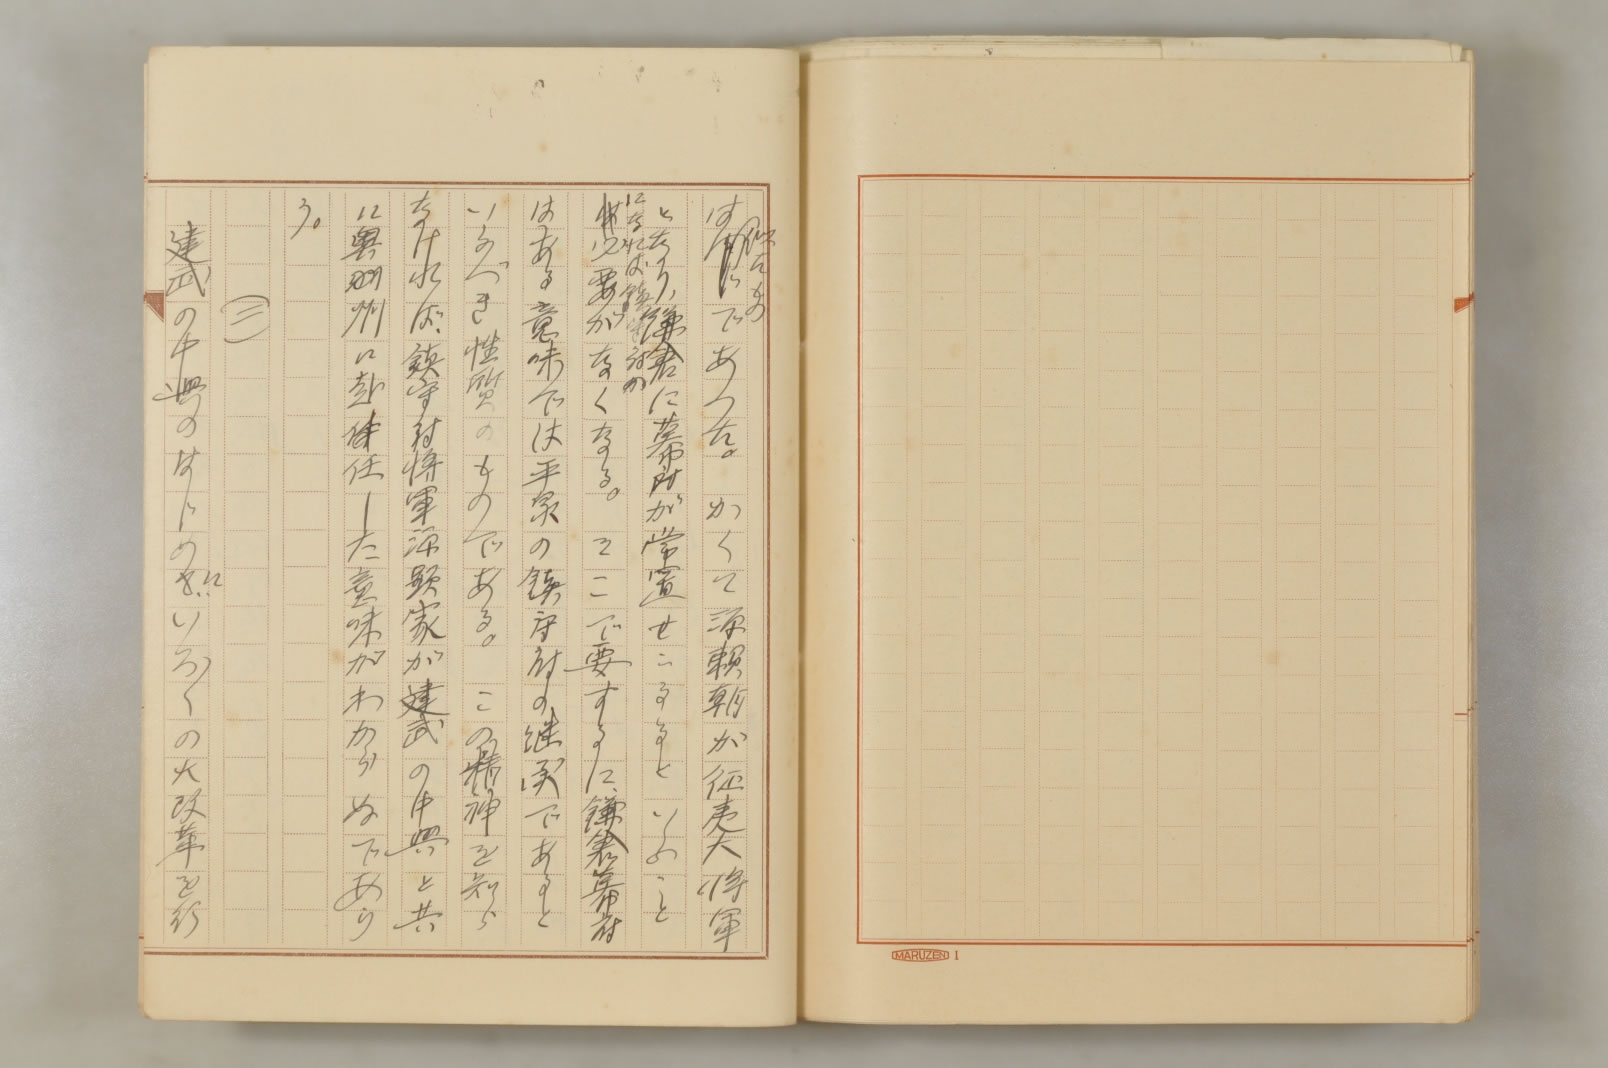 は似たものであつた。かくて源頼朝が征夷大将軍
となり、鎌倉に幕府が常置せらるるといふこと
になれば鎮守府の
必要がなくなる。そこで要するに、鎌倉幕府
はある意味では平泉の鎮守府の継承であると
いふべき性質のものである。この精神を知ら
なければ、鎮守府将軍源顕家が建武の中興と共
に奥州に赴任した意味がわからぬであら
う。
(三)
建武の中興のはじめにいろ〳〵の大改革を行
MARUZEN 1